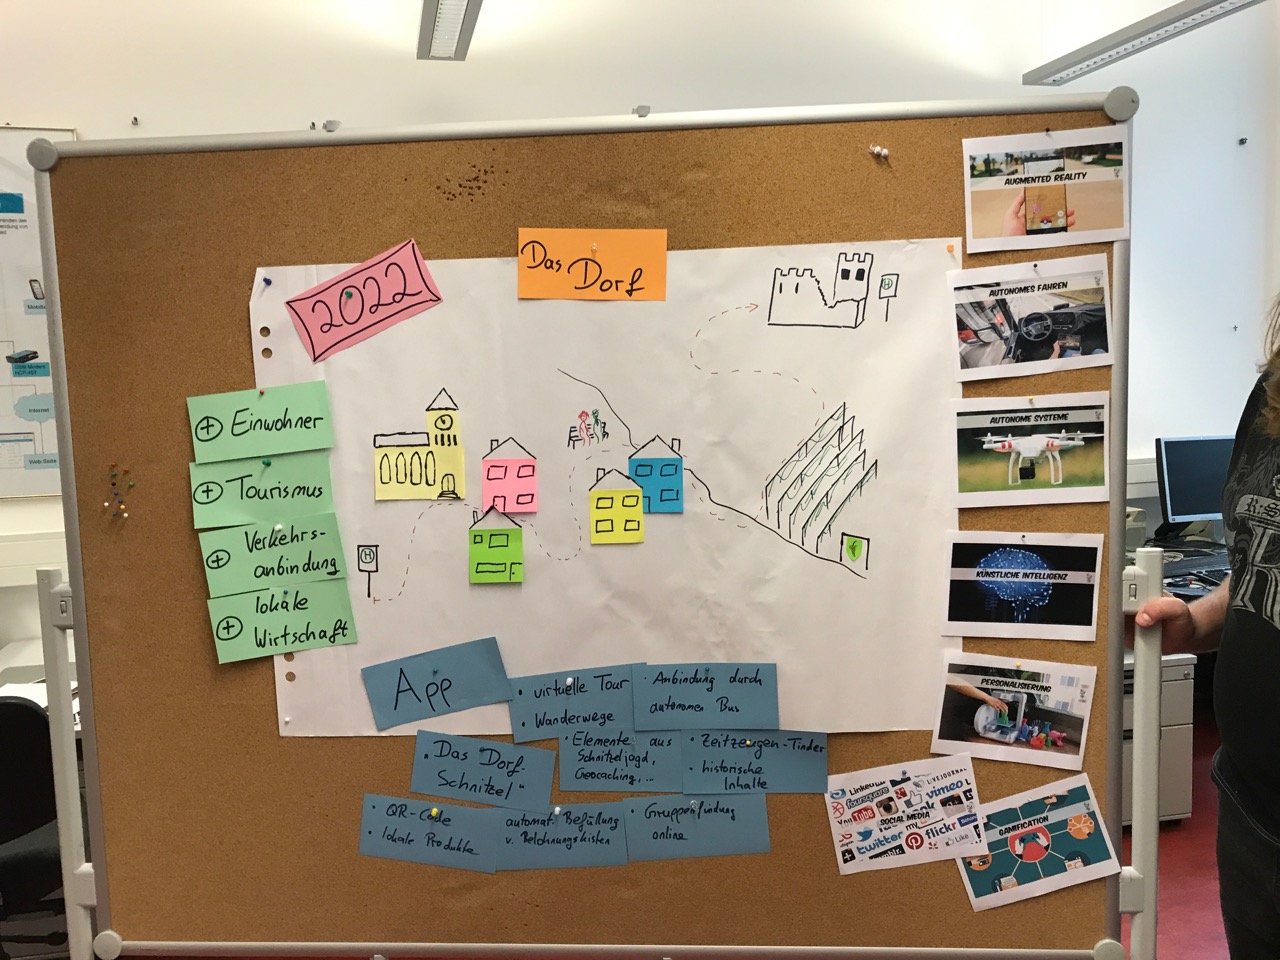 2022
Das
Dorf
H
H
+ Einwohner
+ Tourismus
+ Verkehrs-
anbindung
+ lokale
Wirtschaft
App
• virtuelle Tour
• Wanderwege
• Anbindung durch
autonomen Bus
„Das Dorf-
Schnitzel"
• Elemente aus
Schnitzeljagd,
Geocaching,...
• Zeitzeugen-Tinder
• historische
Inhalte
• QR-Code
• lokale Produkte
automat. Befüllung
v. Belohnungskisten
• Gruppenfindung
online
AUGMENTED REALITY
AUTONOMES FAHREN
AUTONOME SYSTEME
KÜNSTLICHE INTELLIGENZ
PERSONALISIERUNG
LinkedIn
LIVEJOURNAL
foursquare
vimeo
YouTube
SOCIAL MEDIA
my
twitter
flickr
Like
tumblr
GAMIFICATION
Internet
Web-Seite